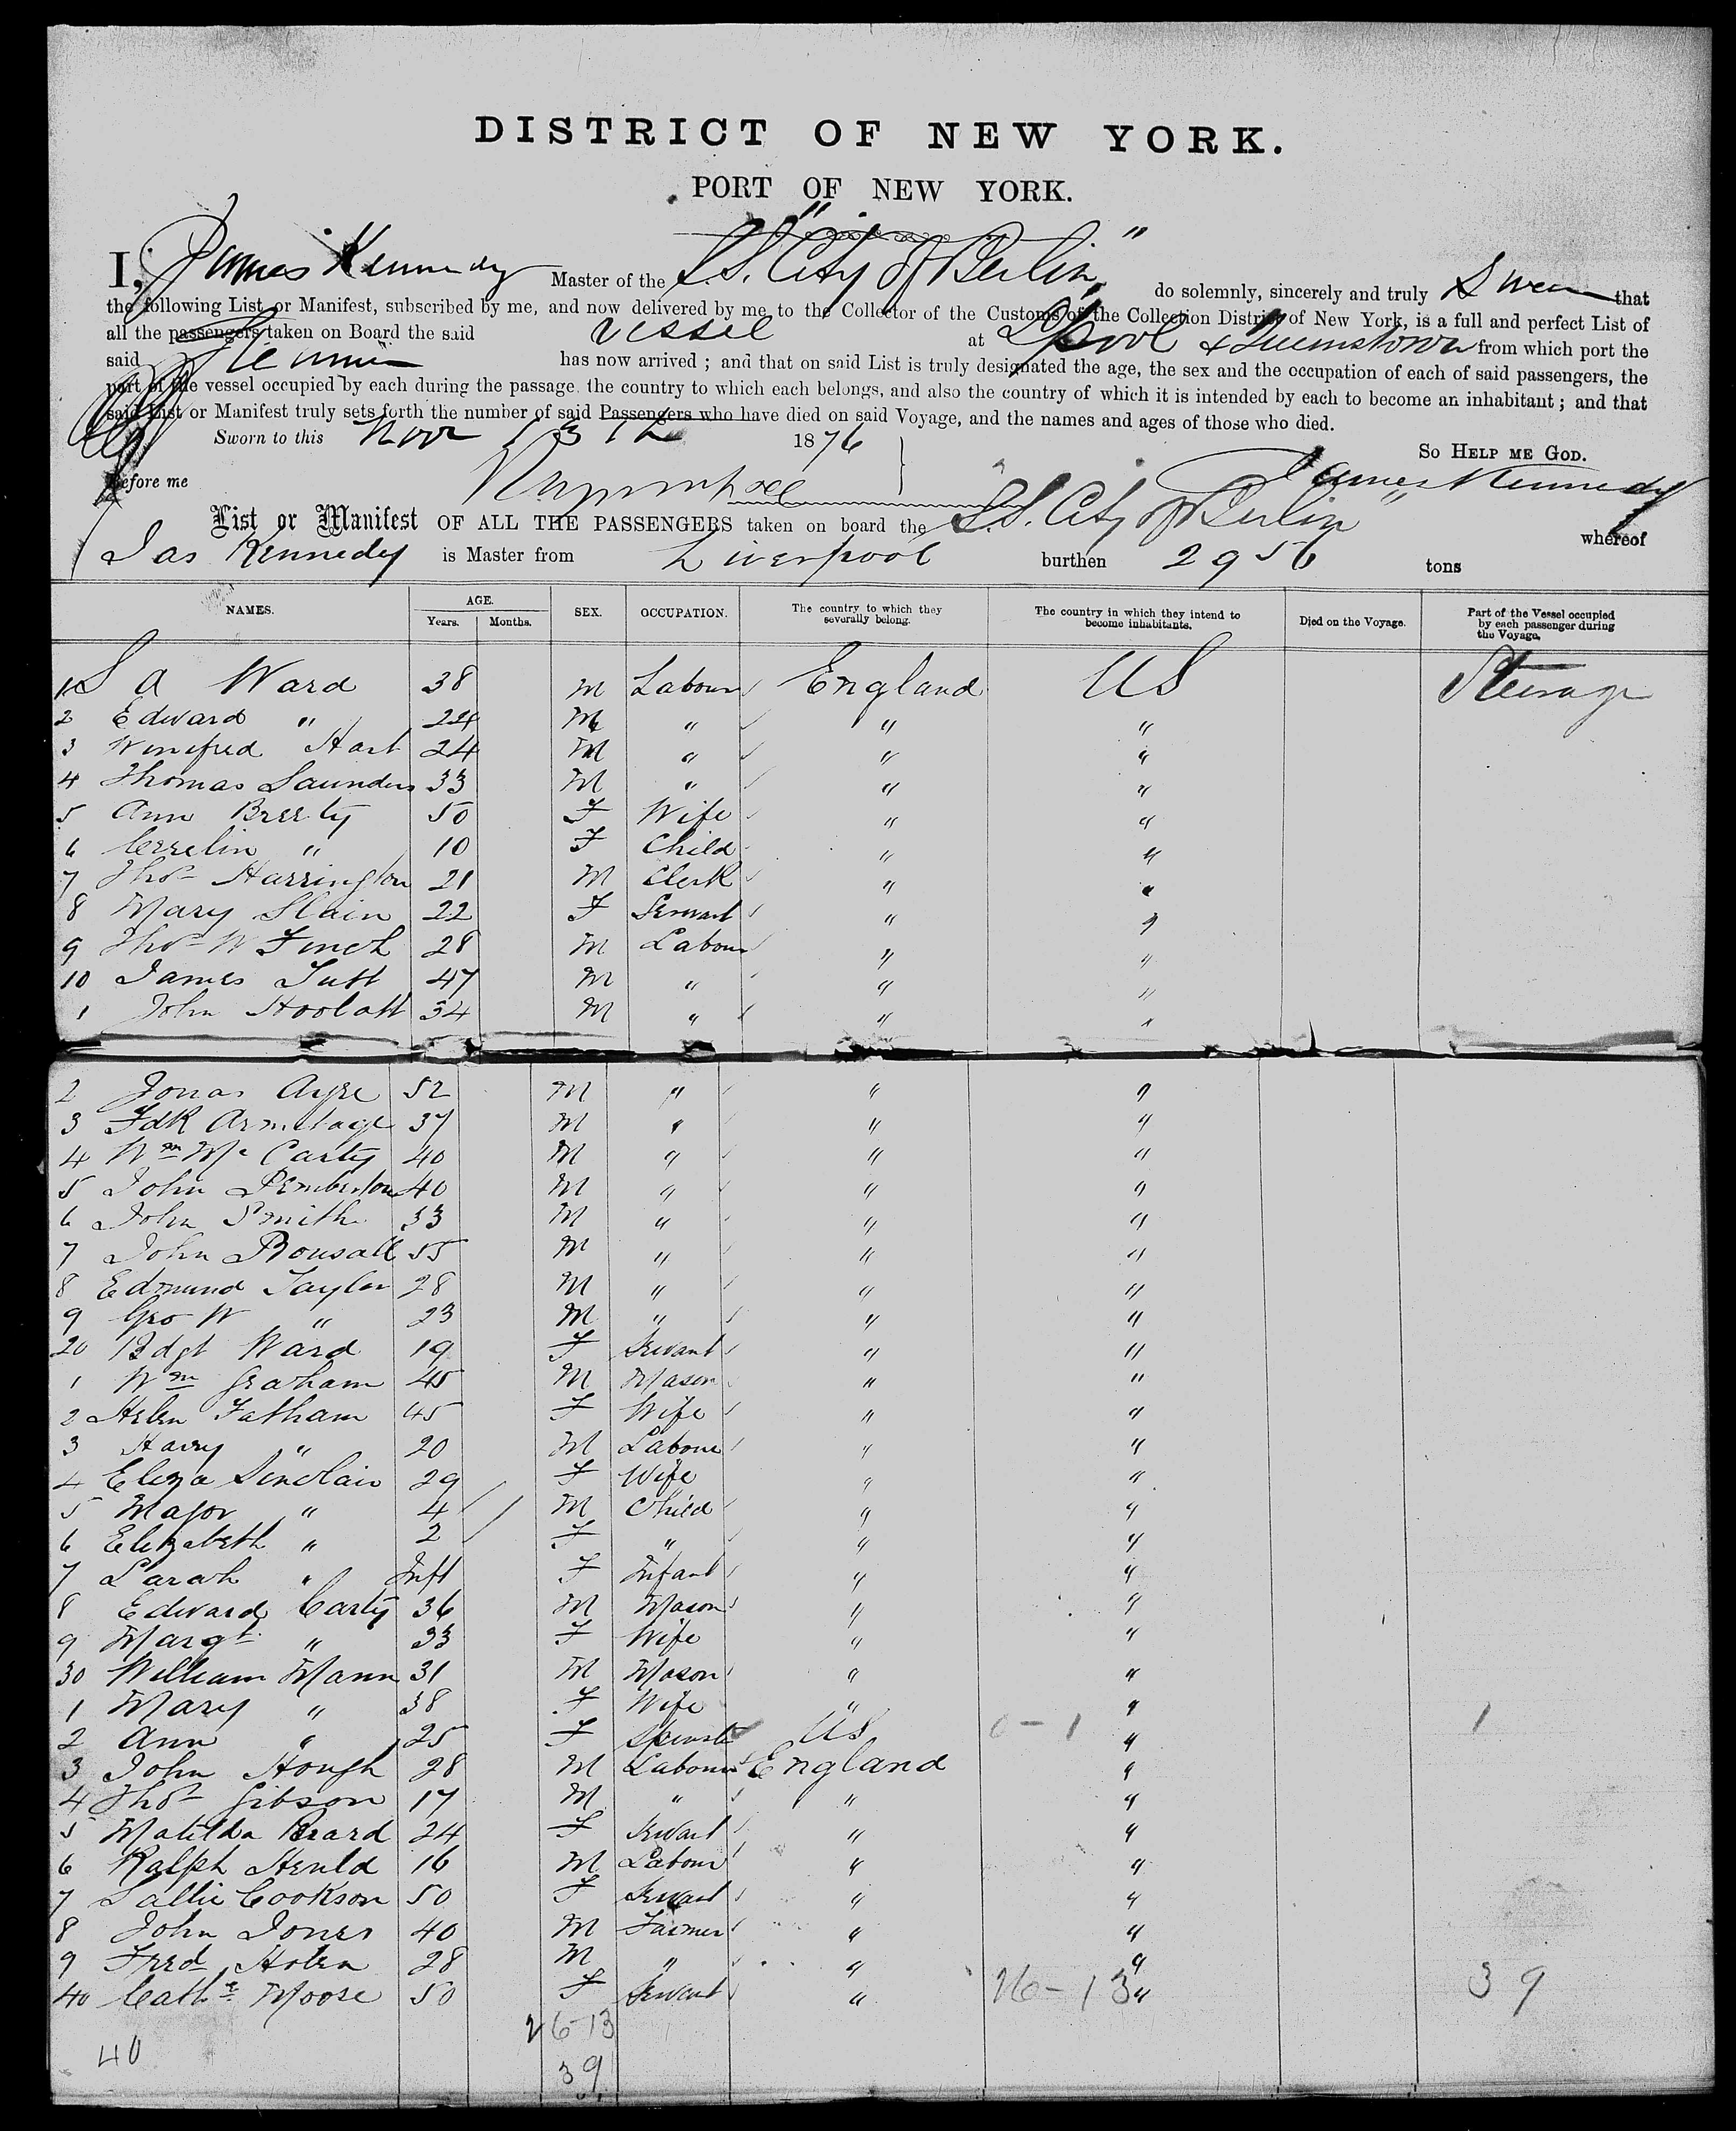 DISTRICT OF NEW YORK.
PORT OF NEW YORK.
I, James Kennedy Master of the "S.S. City of Berlin" do solemnly, sincerely and truly Swear that
the following List or Manifest, subscribed by me, and now delivered by me to the Collector of the Customs of the Collection District of New York, is a full and perfect List of
all the passengers taken on Board the said Vessel at L'pool & Queenstown from which port the
said Steamer has now arrived ; and that on said List is truly designated the age, the sex and the occupation of each of said passengers, the
part of the vessel occupied by each during the passage, the country to which each belongs, and also the country of which it is intended by each to become an inhabitant ; and that
said List or Manifest truly sets forth the number of said Passengers who have died on said Voyage, and the names and ages of those who died.
Sworn to this Novr 13th 1876
So HELP ME GOD.
Before me James Kennedy
List or Manifest OF ALL THE PASSENGERS taken on board the S.S. City of Berlin" whereof
Jas Kennedy is Master from Liverpool burthen 2956 tons
NAMES. AGE. Years. Months. SEX. OCCUPATION. The country to which they severally belong. The country in which they intend to become inhabitants. Died on the Voyage. Part of the Vessel occupied by each passenger during the Voyage.
1 S A Ward 38 M Labour England US Steerage
2 Edward " 24 M " " "
3 Winifred Hart 24 M " " "
4 Thomas Saunders 33 M " " "
5 Ann Brerty 50 F Wife " "
6 " 10 F Child " "
7 Thos Harrington 21 M Clerk " "
8 Mary Slain 22 F Servant " "
9 Thos W Finch 28 M Labour " "
10 James Tutt 47 M " " "
1 John Hoolatt 34 M " " "
2 Jonas Ayre 52 M " " "
3 Fdk Armitage 37 M " " "
4 Wm Mc Carty 40 M " " "
5 John Pemberton 40 M " " "
6 John Smith 33 M " " "
7 John Bousall 55 M " " "
8 Edmund Taylor 28 M " " "
9 Geo W " 23 M " " "
20 Bdgt Ward 19 F Servant " "
1 Wm Graham 45 M Mason " "
2 Helen Fatham 45 F Wife " "
3 Harry " 20 M Labour " "
4 Eliza Sinclair 29 F Wife " "
5 Major " 4 M Child " "
6 Elizabeth " 2 F " " "
7 Sarah " Inft F Infant " "
8 Edward Carty 36 M Mason " "
9 Margt " 33 F Wife " "
30 William Mann 31 M Mason " "
1 Mary " 38 F Wife " "
2 Ann " 25 F Spinster US 0-1 " 1
3 John Hough 28 M Labour England "
4 Thos Gibson 17 M " " "
5 Matilda Beard 24 F Servant " "
6 Ralph Henld 16 M Labour " "
7 Sallie Cookson 50 F Servant " "
8 John Jones 40 M Farmer " "
9 Fred Holen 28 M " " "
40 Cathe Moore 50 F Servant " 26-13 " 39
26-13
40
39